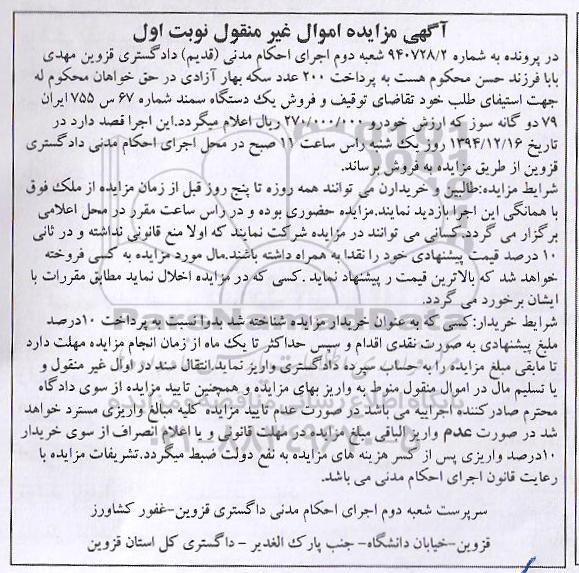 آگهی مزایده اموال غیر منقول نوبت اول
در پرونده به شماره ۹۴۰۷۲۸/۲ شعبه دوم اجرای احکام مدنی (قدیم) دادگستری قزوین مهدی
بابا فرزند حسن محکوم هست به پرداخت ۲۰۰ عدد سکه بهار آزادی در حق خواهان محکوم له
جهت استیفای طلب خود تقاضای توقیف و فروش یک دستگاه سمند شماره ۶۷ س ۷۵۵ ایران
۷۹ دو گانه سوز که ارزش خودرو ۲۷۰/۰۰۰/۰۰۰ ریال اعلام میگردد.این اجرا قصد دارد در
تاریخ ۱۳۹۴/۱۲/۱۶ روز یک شنبه راس ساعت ۱۱ صبح در محل اجرای احکام مدنی دادگستری
قزوین از طریق مزایده به فروش برساند.
شرایط مزایده:طالبین و خریدارن می توانند همه روزه تا پنج روز قبل از زمان مزایده از ملک فوق
با همانگی این اجرا بازدید نمایند.مزایده حضوری بوده و در راس ساعت مقرر در محل اعلامی
برگزار می گردد.کسانی می توانند در مزایده شرکت نمایند که اولا منع قانونی نداشته و در ثانی
۱۰ درصد قیمت پیشنهادی خود را نقدا به همراه داشته باشند.مال مورد مزایده به کسی فروخته
خواهد شد که بالاترین قیمت ر پیشنهاد نماید .کسی که در مزایده اخلال نماید مطابق مقررات با
ایشان برخورد می گردد.
شرایط خریدار:کسی که به عنوان خریدار مزایده شناخته شد بدوا نسبت به پرداخت ۱۰درصد
ملبغ پیشنهادی به صورت نقدی اقدام و سپس حداکثر تا یک ماه از زمان انجام مزایده مهلت دارد
تا مابقی مبلغ مزایده را به حساب سپرده دادگستری واریز نماید.انتقال سند در اوال غیر منقول و
یا تسلیم مال در اموال منقول منوط به واریز بهای مزایده و همچنین تایید مزایده از سوی دادگاه
محترم صادر کننده اجراییه می باشد در صورت عدم تایید مزایده کلیه مبالغ واریزی مسترد خواهد
شد در صورت عدم واریز الباقی مبلغ مزایده در مهلت قانونی و یا اعلام انصراف از سوی خریدار
۱۰درصد واریزی پس از کسر هزینه های مزایده به نفع دولت ضبط میگردد.تشریفات مزایده با
رعایت قانون اجرای احکام مدنی می باشد.
سرپرست شعبه دوم اجرای احکام مدنی داگستری قزوین-غفور کشاورز
قزوین-خیابان دانشگاه- جنب پارک الغدیر - داگستری کل استان قزوین
ParsNamadData
۰۲۱-۸۸۳۴۹۶۷۰-۵